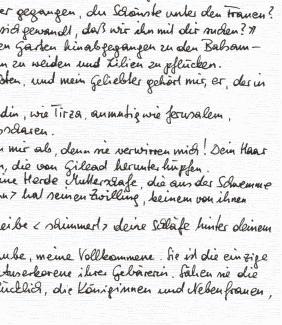 er gegangen, du Schönste unter den Frauen?
sich gewandt, daß wir ihn mit dir suchen?"
en Garten hinabgegangen zu den Balsam-
n zu weiden und Lilien zu pflücken.
ten, und mein Geliebter gehört mir, er, der in
din, wie Tirza, anmutig wie Jerusalem,
scharen.
n mir ab, denn sie verwirren mich! Dein Haar
n, die von Gilead herunterhüpfen.
ine Herde Mutterschafe, die aus der Schwemme
n> hat seinen Zwilling, keinem von ihnen
eibe < schimmert > deine Schläfe hinter deinem
ube, meine Vollkommene. Sie ist die einzige
Auserkorene ihrer Gebärerin. Sähen sie die
ücklich, die Königinnen und Nebenfrauen,